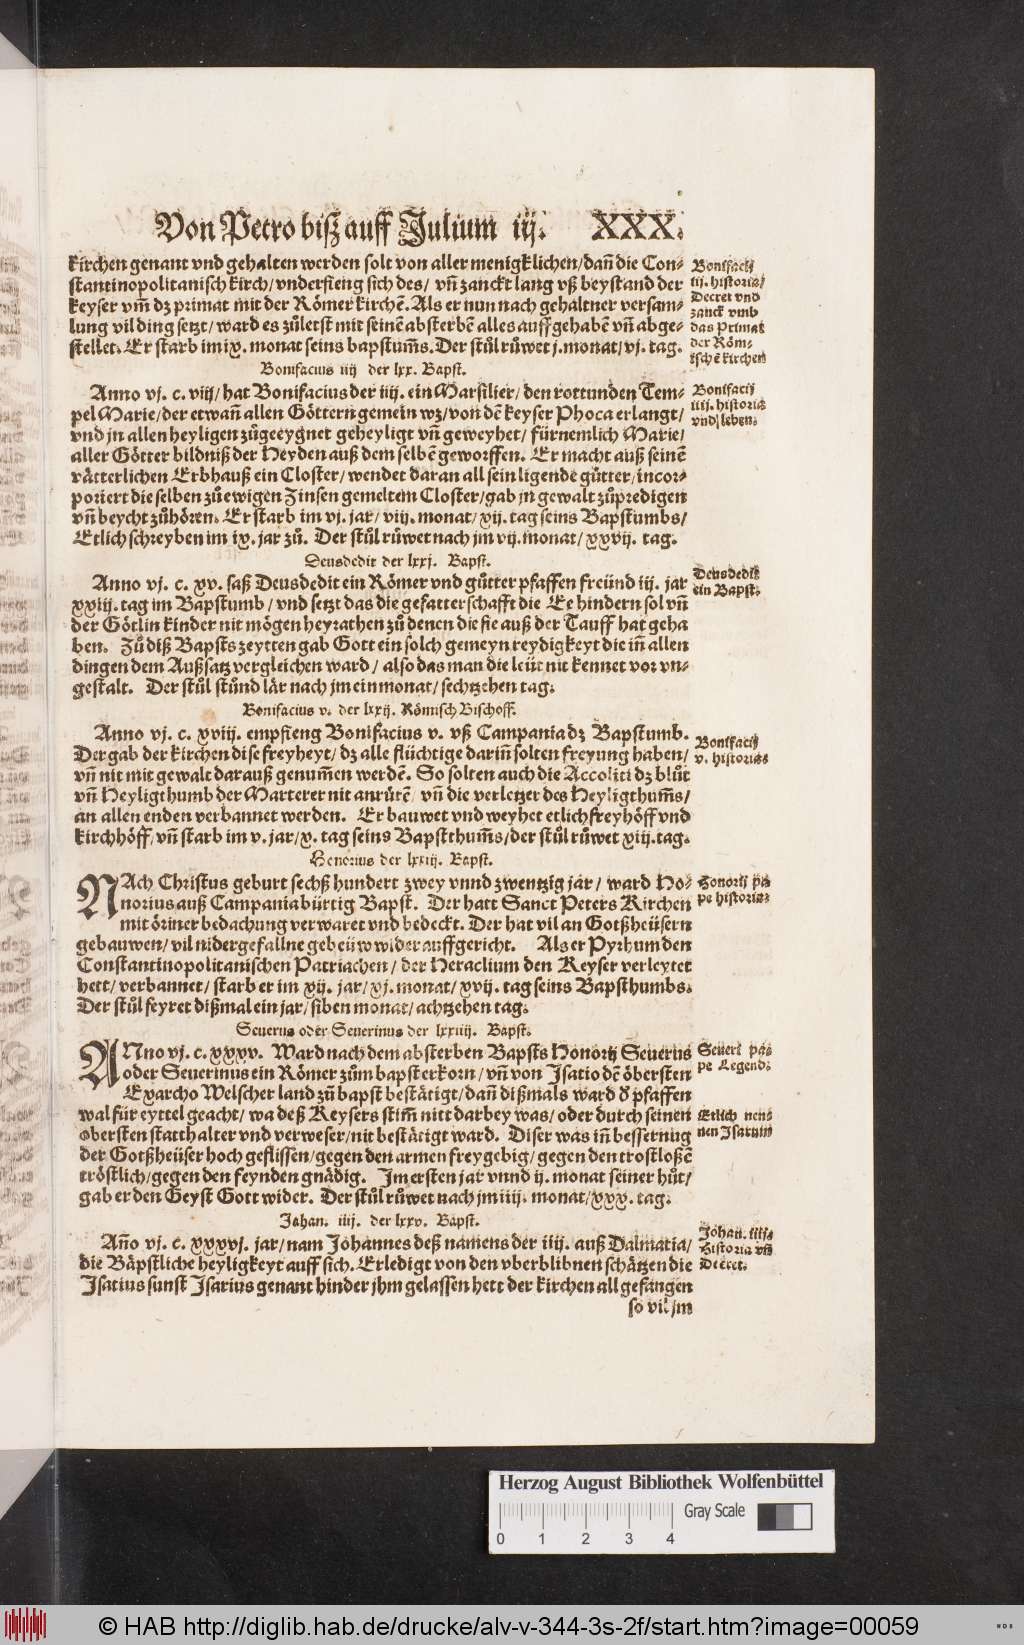 Von Petro biß auff Julium iij. XXX.
kirchen genant vnd gehalten werden solt von aller menigklichen/dañ die Con-
stantinopolitanisch kirch/vnderfieng sich des/ vñ zanckt lang vß beystand der
keyser vm̃ dz primat mit der Römer kirchẽ. Als er nun nach gehaltner versam-
lung vil ding setzt/ward es zůletst mit seinẽ absterbẽ alles auffgehabẽ vñ abge-
stellet. Er starb im ix. monat seins bapstum̃s. Der stůl růwet j. monat/vj. tag.
Bonifacij
iij. historia/
Decret vnd
zanck vmb
das Primat
der Röm-
ischẽ kirchen
Bonifacius iiij der lxx. Bapst.
Anno vj. c. viij/hat Bonifacius der iiij. ein Marsilier/den rottunden Tem-
pel Marie/der etwañ allen Göttern gemein wz/von dẽ keyser Phoca erlangt/
vnd jn allen heyligen zůgeeygnet geheyligt vñ geweyhet/ fürnemlich Marie/
aller Götter bildniß der Heyden auß dem selbẽ geworffen. Er macht auß seinẽ
vätterlichen Erbhauß ein Closter/wendet daran all sein ligende gůtter/incor-
poriert die selben zů ewigen Zinsen gemeltem Closter/gab jn gewalt zůpredigen
vñ beycht zůhören. Er starb im vj. jar/viij. monat/xij. tag seins Bapstumbs/
Etlich schreyben im ix. jar zů. Der stůl růwet nach jm vij. monat/xxvij. tag.
Bonifacij
iiij. historia
vnd leben.
Deusdedit der lxxj. Bapst.
Anno vj. c. xv. saß Deusdedit ein Römer vnd gůtter pfaffen freünd iij. jar
xxiij. tag im Bapstumb/vnd setzt das die gefatterschafft die Ee hindern sol vñ
der Götlin kinder nit mögen heyrathen zů denen die sie auß der Tauff hat geha
ben. Zů diß Bapsts zeytten gab Gott ein solch gemeyn reydigkeyt die iñ allen
dingen dem Außsatz vergleichen ward/also das man die leüt nit kennet vor vn-
gestalt. Der stůl stůnd lär nach jm ein monat/sechtzehen tag.
Deusdedit
ein Bapst.
Bonifacius v. der lxxij. Römisch Bischoff.
Anno vj. c. xviij. empfieng Bonifacius v. vß Campania dz Bapstumb.
Der gab der kirchen dise freyheyt/dz alle flüchtige dariñ solten freyung haben/
vñ nit mit gewalt darauß genum̃en werdẽ. So solten auch die Accoliti dz blůt
vñ Heyligthumb der Marterer nit anrůrẽ/vñ die verletzer des Heyligthum̃s/
an allen enden verbannet werden. Er bauwet vnd weyhet etlich freyhöff vnd
kirchhöff/vñ starb im v. jar/x. tag seins Bapstthum̃s/der stůl růwet xiij. tag.
Bonifacij
v. historias
Honorius der lxxiij. Bapst.
NAch Christus geburt sechß hundert zwey vnnd zwentzig jar/ ward Ho-
norius auß Campania bürtig Bapst. Der hatt Sanct Peters Kirchen
mit öriner bedachung verwaret vnd bedeckt. Der hat vil an Gotßheüsern
gebauwen/vil nidergefallne gebeüw wider auffgericht. Als er Pyrhum den
Constantinopolitanischen Patriachen/der Heraclium den Keyser verleytet
hett/verbannet/starb er im xij. jar/xj. monat/xvij. tag seins Bapsthumbs.
Der stůl feyret dißmal ein jar/siben monat/achtzehen tag.
Honorij pa
pe historia.
Seuerus oder Seuerinus der lxxiiij. Bapst.
ANno vj. c. xxxv. Ward nach dem absterben Bapsts Honorij Seuerus
oder Seuerinus ein Römer zům bapst erkorn/vñ von Isatio dẽ öbersten
Exarcho Welscher land zů bapst bestätigt/dañ dißmals ward d' pfaffen
wal für eyttel geacht/wa deß Keysers stim̃ nitt darbey was/oder durch seinen
obersten statthalter vnd verweser/nit bestätigt ward. Diser was iñ bessernug
der Gotßheüser hoch geflissen/gegen den armen freygebig/gegen den trostloßẽ
tröstlich/gegen den feynden gnädig. Im ersten jar vnnd ij. monat seiner hůt/
gab er den Geyst Gott wider. Der stůl růwet nach jm iiij. monat/xxx. tag.
Seueri pa-
pe Legend.
Etlich nen-
nen Isatium
Johan. iiij. der lxxv. Bapst.
Añо vj. c. xxxvj. jar/nam Johannes deß namens der iiij. auß Dalmatia/
die Bäpstliche heyligkeyt auff sich. Erledigt von den vberblibnen schätzen die
Isatius sunst Isarius genant hinder jhm gelassen hett der kirchen all gefangen
so vil jm
Johan. iiij.
Historia vñ
Decret.
Herzog August Bibliothek Wolfenbüttel
Gray Scale
0 1 2 3 4
© HAB http://diglib.hab.de/drucke/alv-v-344-3s-2f/start.htm?image=00059